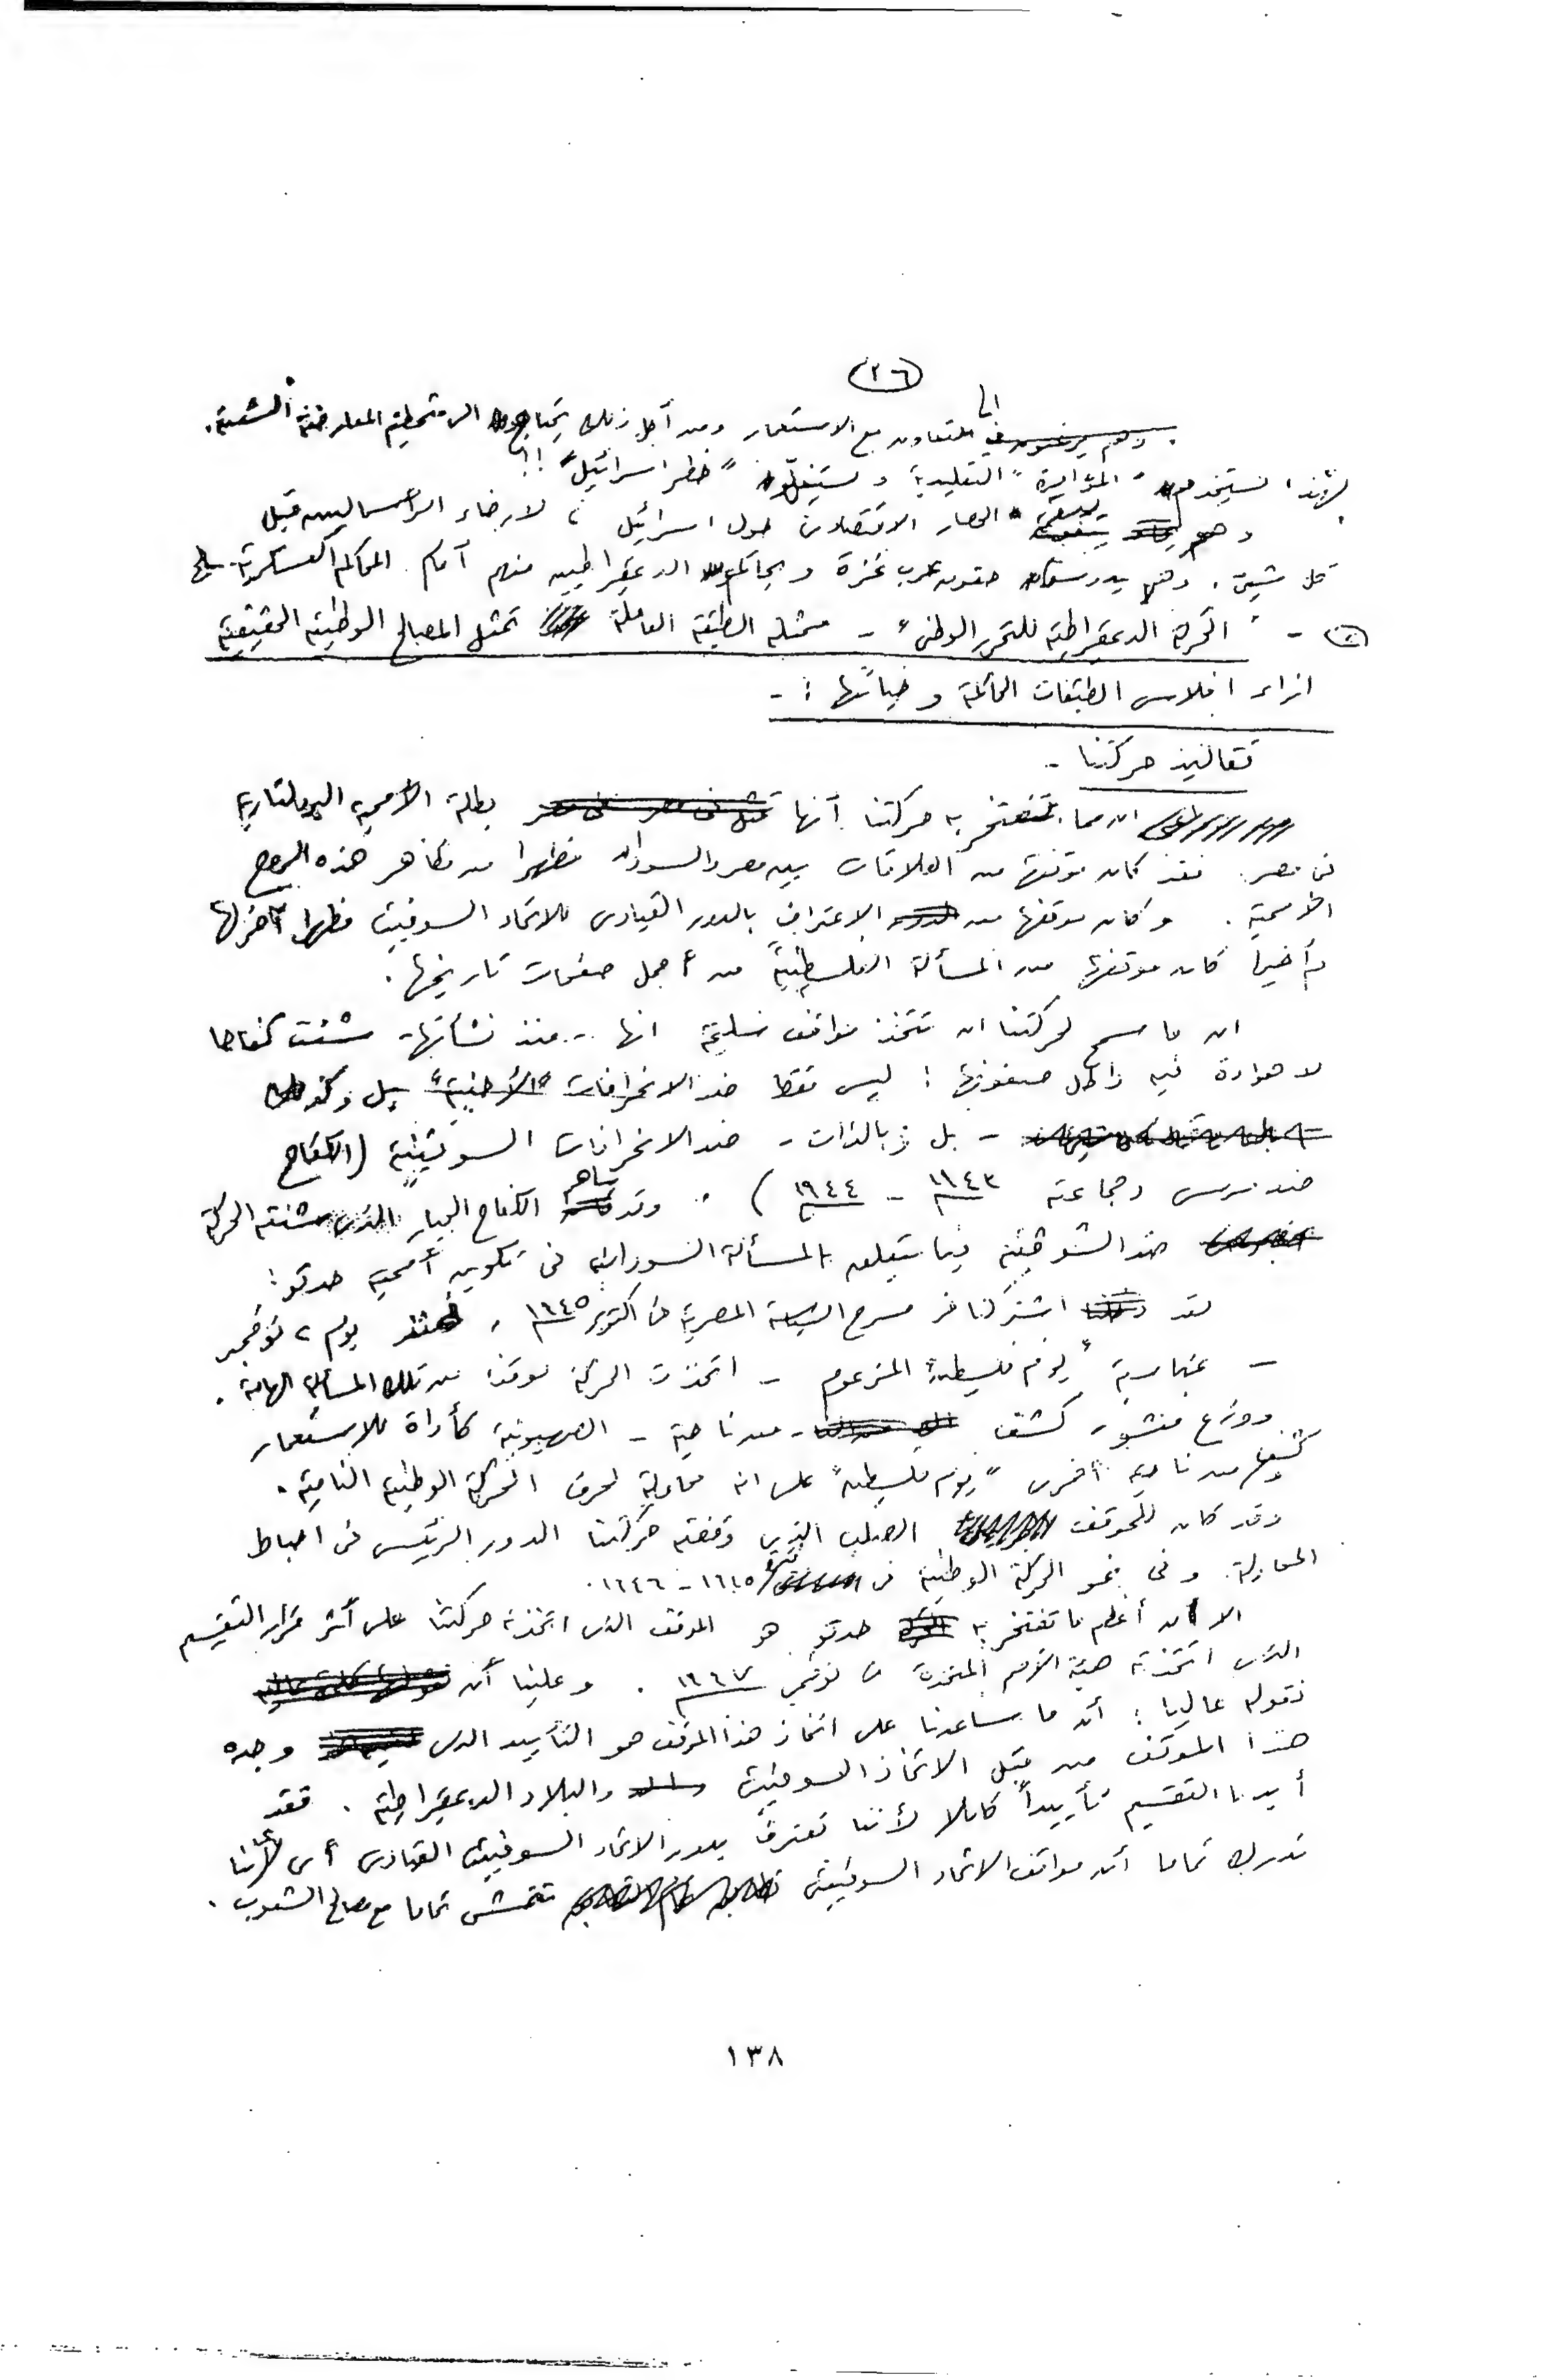 (٢٦)
الى
وهم يرغبون في التعاون مع الاستعمار ومن أجل ذلك يحتاجون الى تحطيم المعارضة الشعبية.
لهذا استخدموا "المؤامرة" التقليدية ويستغلون "خطر اسرائيل" !!
وهم الحصار الاقتصادى حول اسرائيل ، لارضاء الرأسماليين قبل
كل شيئ . وهم يدوسون حقوق عرب غزة ويحاكمون الديمقراطيين منهم أمام المحاكم العسكرية
- " الحركة الديمقراطية للتحرر الوطنى " - ممثلة الطبقة العاملة تمثل المصالح الوطنية الحقيقية
ازاء افلاس الطبقات الحاكمة وخيانتها : -
تقاليد حركتنا -
ان مما تفتخر به حركتنا أنها بطلة الأممية البروليتارية
فى مصر . فقد كان موقفها من العلاقات بين مصر والسودان مظهرا من مظاهر هذه الروح
الأممية . وكان موقفها من الاعتراف بالدور القيادى للاتحاد السوفيتى مظهرا آخر لها
وأخيرا كان موقفها من المسألة الفلسطينية من أجمل صفحات تاريخها .
ان ما سمح لحركتنا ان تتخذ مواقف سليمة انها - منذ نشأتها - شنت كفاحا
لا هوادة فيه داخل صفوفها : ليس فقط ضد الانحرافات "الأجنبية"
- بل وبالذات - ضد الانحرافات الشوفينية (الكفاح
ضد وجماعته ١٩٤٣ - ١٩٤٤ ) . وقد ساهم الكفاح الجبار الذى شنته الحركة
ضد الشوفينية فيما يتعلق بالمسألة السودانية فى تكوين أممية حدتو :
لقد اشتركنا فى مسرح السياسة المصرية فى أكتوبر ١٩٤٥ . يوم ٢ نوفمبر
- بمناسبة "يوم فلسطين" المزعوم - اتخذت الحركة موقفا من تلك المسألة الهامة .
ووزع منشور كشف - من ناحية - الصهيونية كأداة للاستعمار
وكشف من ناحية أخرى "يوم فلسطين" على انه محاولة لحرف الحركة الوطنية النامية .
وقد كان للموقف الصلب الذى وقفته حركتنا الدور الرئيسى فى احباط
المحاولة . وفى نمو الحركة الوطنية فى ١٩٤٥ - ١٩٤٦ .
الا ان أعظم ما تفتخر به حدتو هو الموقف الذى اتخذته حركتنا على أثر قرار التقسيم
الذى اتخذته هيئة الأمم المتحدة فى نوفمبر ١٩٤٧ . وعلينا أن
نقوله عاليا : أن ما ساعدنا على اتخاذ هذا الموقف هو التأييد الذى وجده
هذا الموقف من قبل الاتحاد السوفيتى والبلاد الديمقراطية . فقد
أيدنا التقسيم تأييداً كاملا لأننا نعترف بدور الاتحاد السوفيتى القيادى أى لأننا
ندرك تماما أن مواقف الاتحاد السوفيتى تتمشى تماما مع مصالح الشعوب .
١٣٨